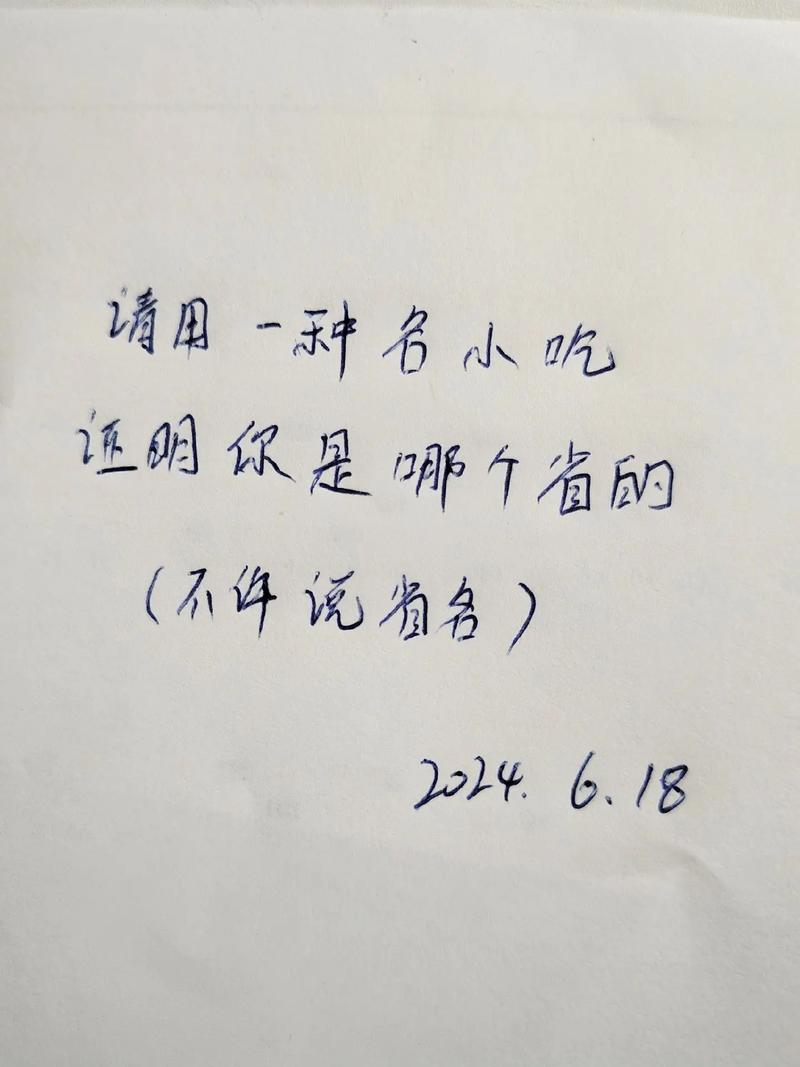 请用一种名小吃
证明你是哪个省的
(不许说省名)
2024.6.18